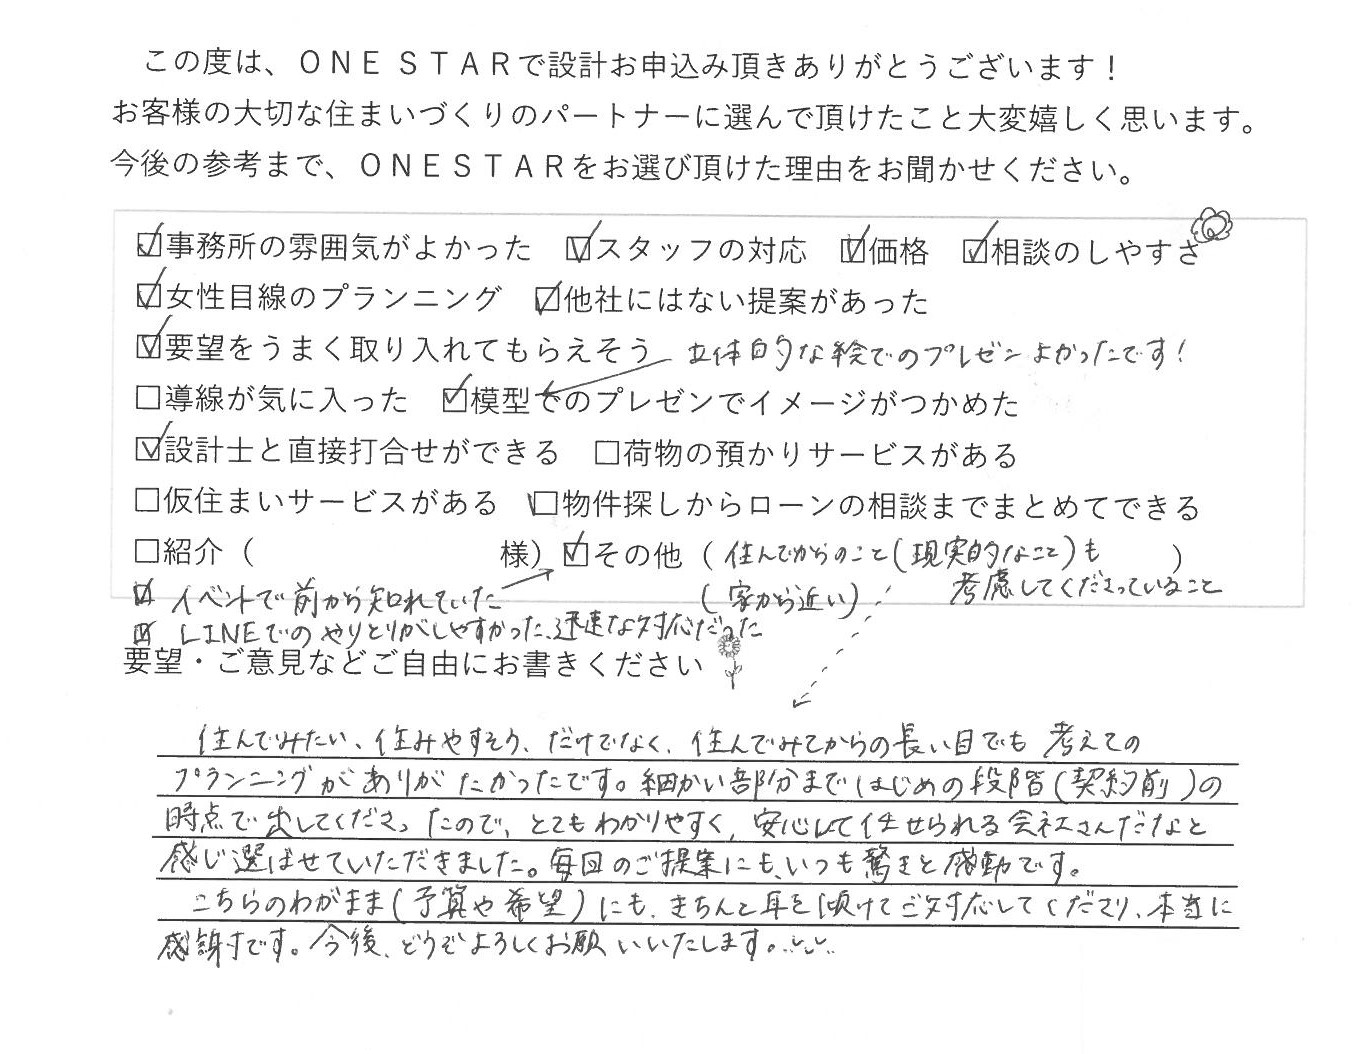 この度は、ＯＮＥ ＳＴＡＲで設計お申込み頂きありがとうございます！
お客様の大切な住まいづくりのパートナーに選んで頂けたこと大変嬉しく思います。
今後の参考まで、ＯＮＥＳＴＡＲをお選び頂けた理由をお聞かせください。
☑事務所の雰囲気がよかった ☑スタッフの対応 ☑価格 ☑相談のしやすさ
☑女性目線のプランニング ☑他社にはない提案があった
☑要望をうまく取り入れてもらえそう 立体的な絵でのプレゼンよかったです！
☐導線が気に入った ☑模型でのプレゼンでイメージがつかめた
☑設計士と直接打合せができる ☐荷物の預かりサービスがある
☐仮住まいサービスがある ☐物件探しからローンの相談までまとめてできる
☐紹介（ 様） ☑その他（住んでからのこと(現実的なこと)も ）
考慮してくださっていること
☑ イベントで前から知れていた (家から近い)
☑ LINEでのやりとりがしやすかった、迅速な対応だった
要望・ご意見などご自由にお書きください
住んでみたい、住みやすそう、だけでなく、住んでみてからの長い目でも考えての
プランニングがありがたかったです。細かい部分まではじめの段階(契約前)の
時点で出してくださったので、とてもわかりやすく、安心して任せられる会社さんだなと
感じ選ばせていただきました。毎回のご提案にも、いつも驚きと感動です。
こちらのわがまま(予算や希望)にも、きちんと耳を傾けてご対応してくださり、本当に
感謝です。今後、どうぞよろしくお願いいたします。